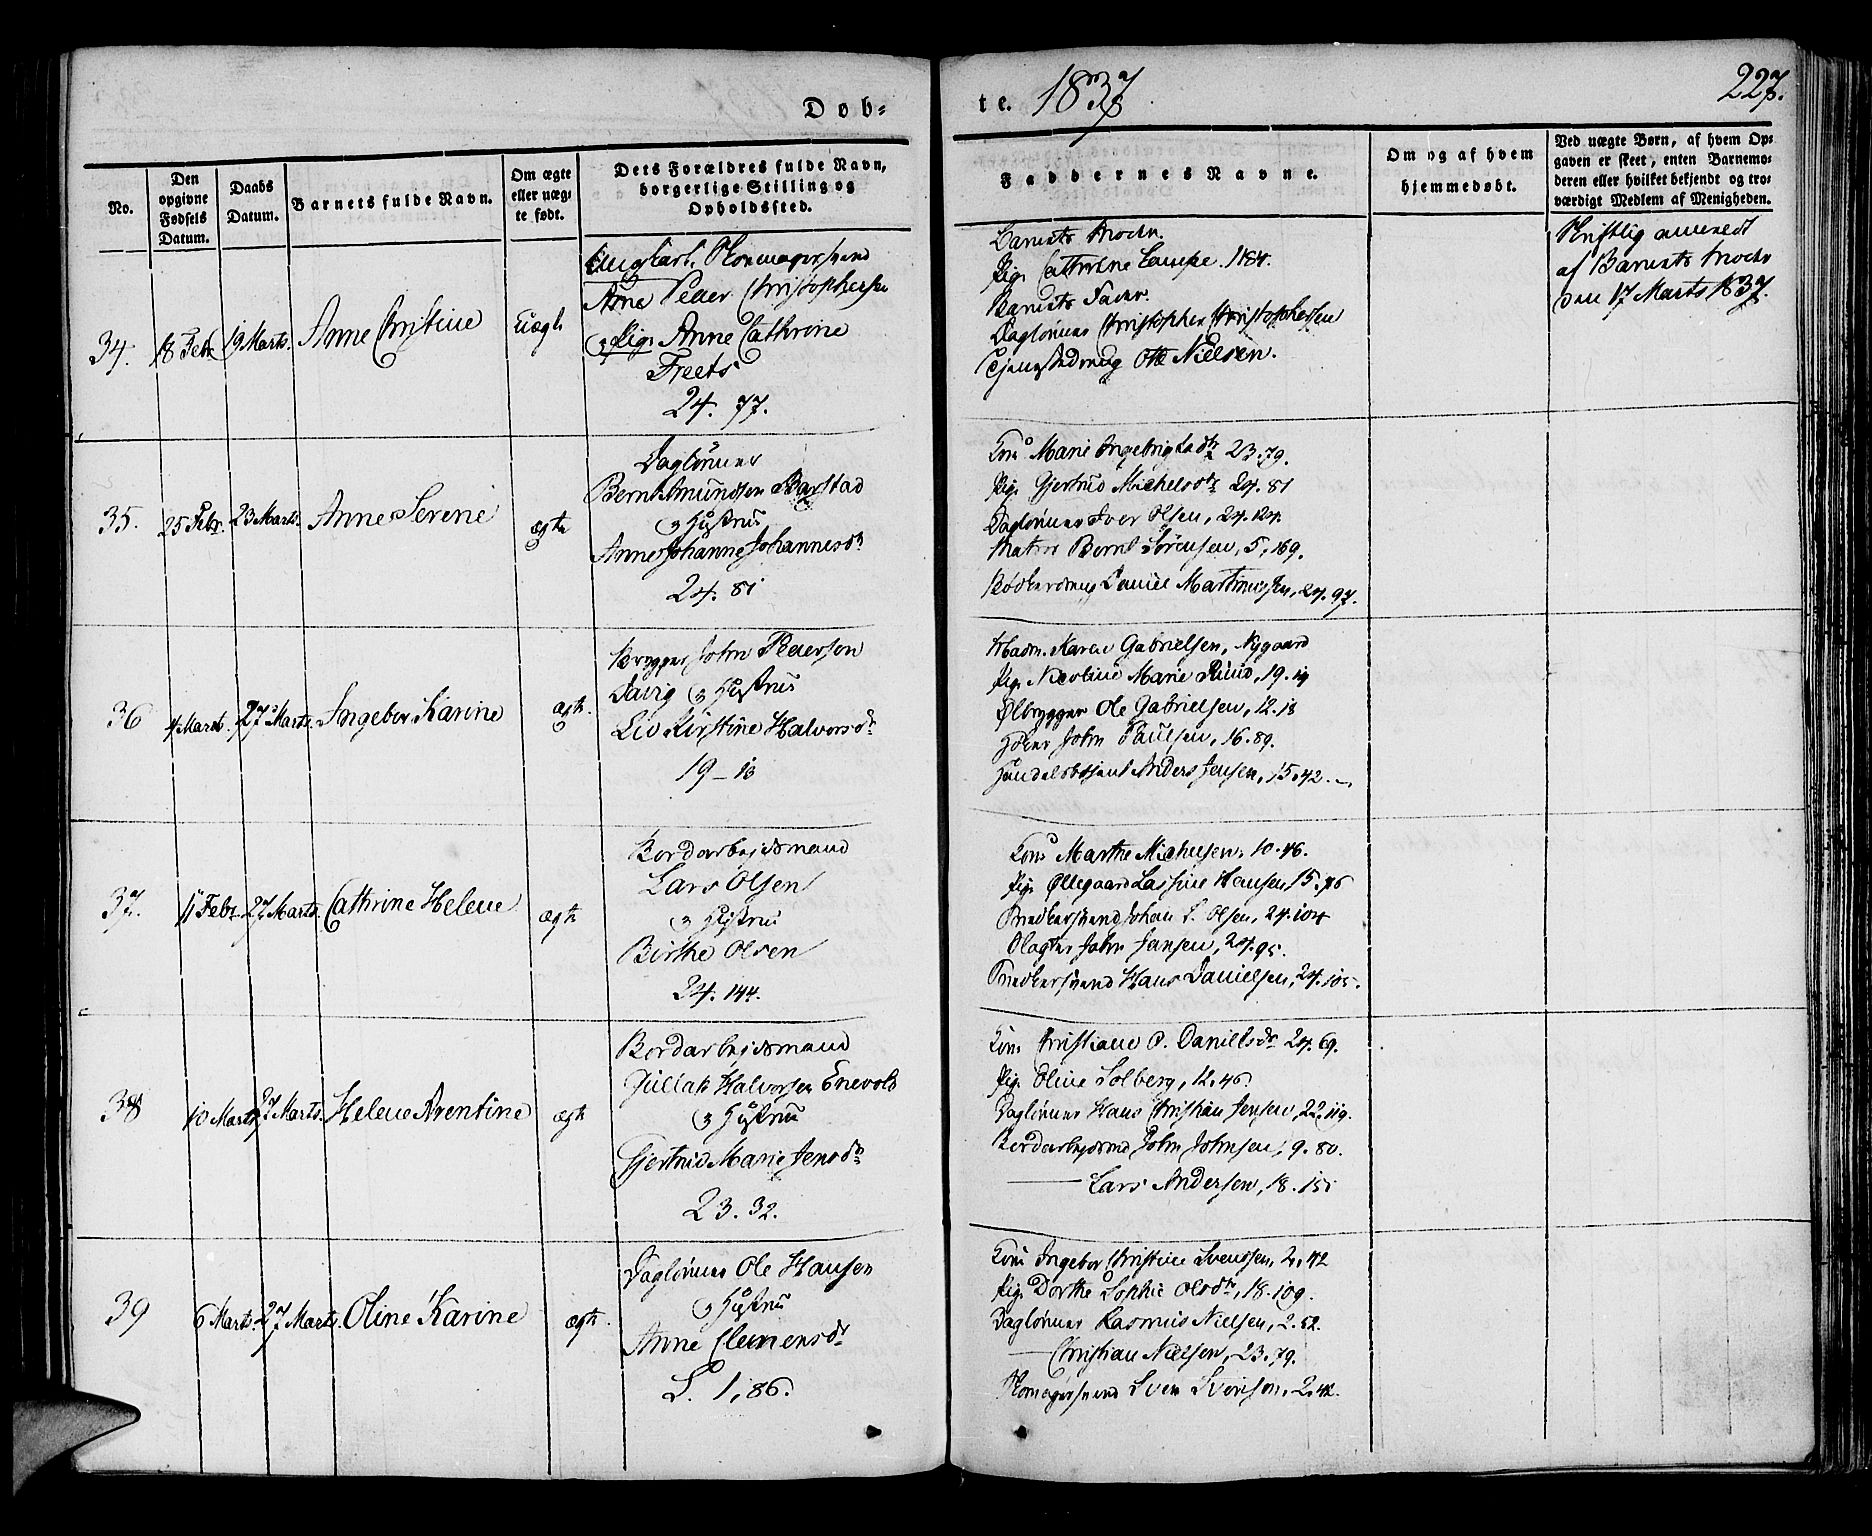 Døb=
te. 1837
227.
No.
Den opgivne Fødsels Datum.
Daabs Datum.
Barnets fulde Navn.
Om ægte eller uæg= te født.
Dets Forældres fulde Navn, borgerlige Stilling og Opholdssted.
Faddernes Navne.
Om og af hvem hjemmedøbt.
Ved uægte Børn, af hvem Op= gaven er skeet, enten Barnemo= deren eller hvilket bekjendt og tro= værdigt Medlem af Menigheden.
34. 18 Febr 19 Marts. Anne Christine Uægte
Ungkarl, Skomagersvend
Peder Christophersen
Pige Anne Cathrine
Freets
24. 77.
Barnets Moder.
Pige Cathrine Lampe. 1184.
Barnets Fader.
Daglønner Christopher Christophersen
Otte Nielsen.
Skriftlig anmeldt
af Barnets Moder
den 17 Marts 1837.
35. 25 Febr. 23 Marts. Anne Serene ægte
Daglønner
Bernt Amundsen Barstad
og Hustru
Anne Johanne Johannesdr
24. 81
Kone Marie Ingebrigtsdr 23.79.
Pige Gjertrud Michelsdr 24.81
Daglønner Iver Olsen, 24.124.
Matros Bernt Sørensen, 5, 169.
Bødkerdreng Daniel Martinussen, 24.97.
36 4 Marts. 27 Marts. Ingebor Karine ægte.
Brygger John Pedersen
Davig og Hustru
Liv Kirstine Halvorsdr
19 - 13
Madm. Karen Gabrielsen, Nygaard
Pige Nicoline Marie Ruud, 19.19
Ølbrygger Ole Gabrielsen, 12.18
John Paulsen, 16.89.
Handelsbetjent Anders Jensen, 15.42.
37. 11 Febr. 27 Marts. Cathrine Helene ægte
Bordarbejdsmand
Lars Olsen
og Hustru
Birthe Olsen
24. 144.
Kone Marthe Michelsen, 10.46.
Pige Øllegaard Lassine Hansen 15.76
Snedkersvend Johan L. Olsen, 24.104
Slagter John Jensen, 24.95.
Snedkersvend Hans Danielsen, 24.105.
38 10 Marts 27 Marts. Helene Arentine ægte
Bordarbejdsmand
Gullak Halvorsen Enevold
og Hustru
Gjertrud Marie Jensdr
23. 32.
Kone Christiane O. Danielsdr 24.69.
Pige Oline Solberg, 12.46.
Daglønner Hans Christian Jensen, 22.119.
Bordarbejdsmd John Johnsen, 9.80.
— Lars Andersen, 18.151
39 6 Marts. 27 Marts. Oline Karine ægte.
Daglønner Ole Hansen
og Hustru
Anne Clemensdr
L. 1, 86.
Kone Ingebor Christine Svendsen, 2.42
Pige Dorthe Sophie Olsdr, 18.109.
Daglønner Rasmus Nielsen, 2.52.
— Christian Nielsen, 23.79.
Skomagersvend Sven Svensen, 2.42.